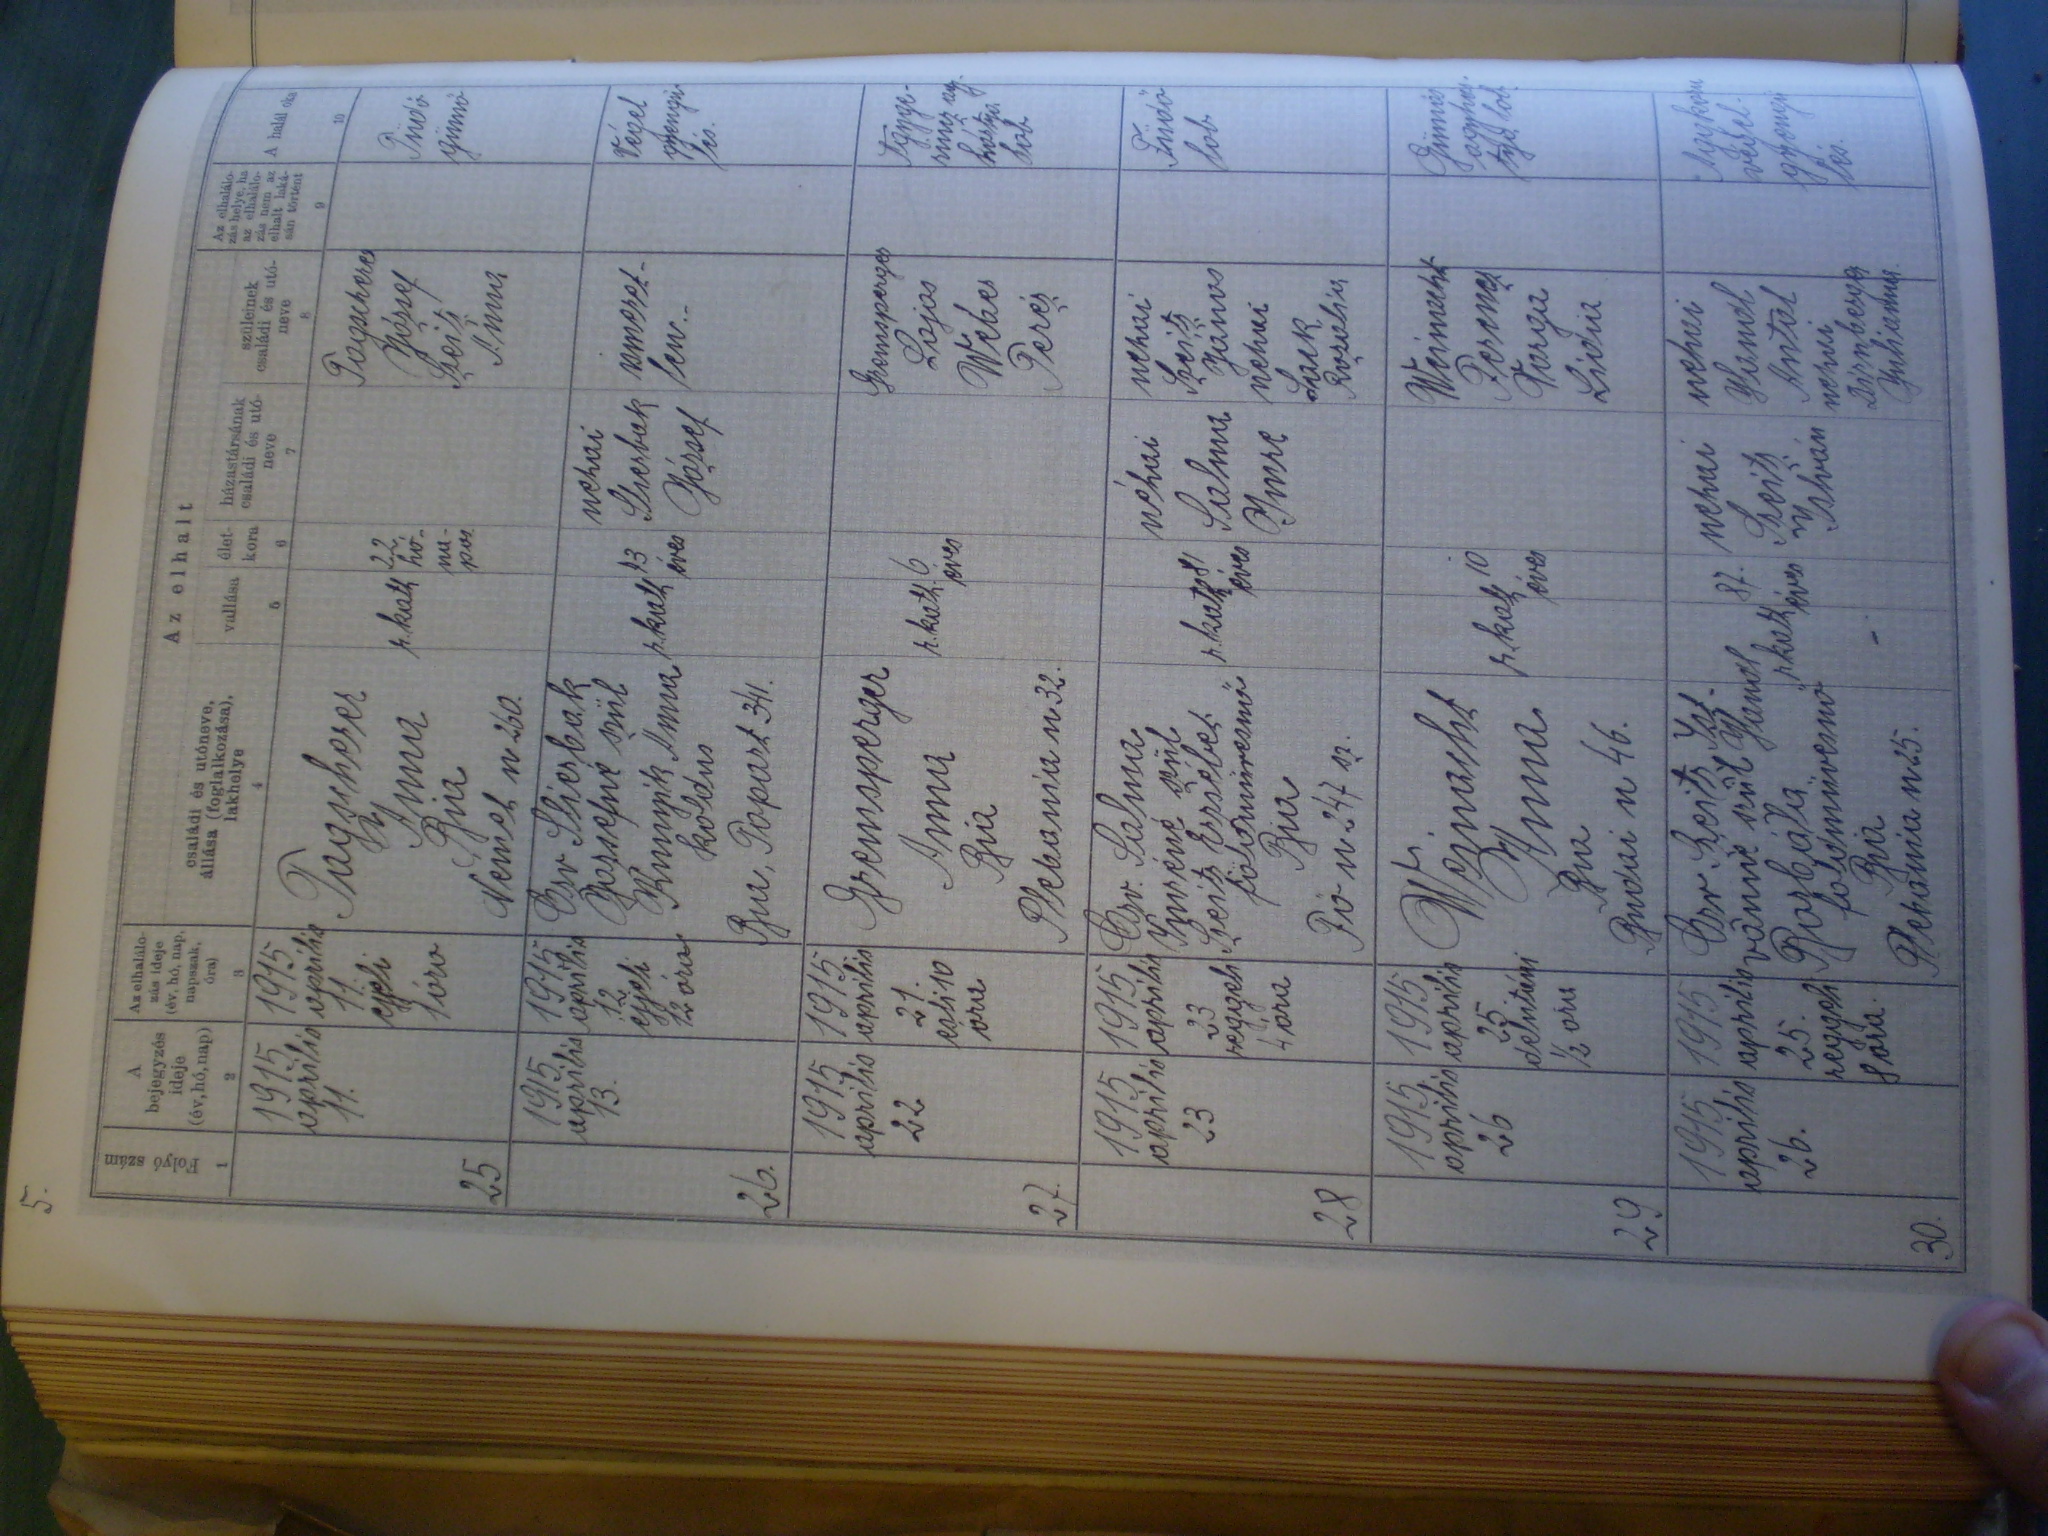 5.
Folyó szám
1
A
bejegyzés
ideje
(év, hó, nap)
2
Az elhalálo-
zás ideje
(év, hó, nap,
napszak,
óra)
3
Az elhalt
családi és utóneve,
állása (foglalkozása),
lakhelye
4
vallása
5
élet-
kora
6
házastársának
családi és utó-
neve
7
szüleinek
családi és utó-
neve
8
Az elhalálo-
zás helye, ha
az elhalálo-
zás nem az
elhalt laká-
sán történt
9
A halál oka
10
25
1915
április
11.
1915
április
11.
éjeli
1 óra
Anna
Bia
Német u 260.
r. kath
22
hó-
na-
pos
József
Leitz
Anna
Tüdő
gümő
26.
1915.
április
13.
1915
április
12
éjeli
12 óra
Özv Stierbak
Józsefné szül
Anna
koldus
Bia, Toparti 341.
r. kath
éves
nehai
Stierbak
József
ismeret-
len..
Végel
gyengü-
lés.
27.
1915
április
22
1915
április
21.
esti 10
óra
Gremsperger
Anna
Bia
Plebania u 32.
r. kath.
6
éves
Gremsperger
Lajos
Weber
Teréz
28
1915
április
23
1915
április
23
reggeli
4 óra
Özv. Salma
Imréné szül
Leitz Erzsébet
földmívesnő
Bia
Fő u 247 sz.
r. kath
éves
néhai
Salma
Imre
nehai
Leitz
János
nehai
Rozalia
Tüdő
lob
29
1915
április
26
1915
április
25
délutáni
1/2 óra
Anna
Bia
Budai u 46.
r. kath
10
éves
Ferenc
Varga
Lidia
30.
1915
április
26.
1915
április
25.
reggeli
8 óra.
Özv Leitz Ist-
vánné szül
Borbála
földmívesnő
Bia
Plebánia u 25.
r kath
87.
éves
nehai
Leitz
István
nehai
Antal
nehai
Julianna.
végel-
gyengü-
lés.